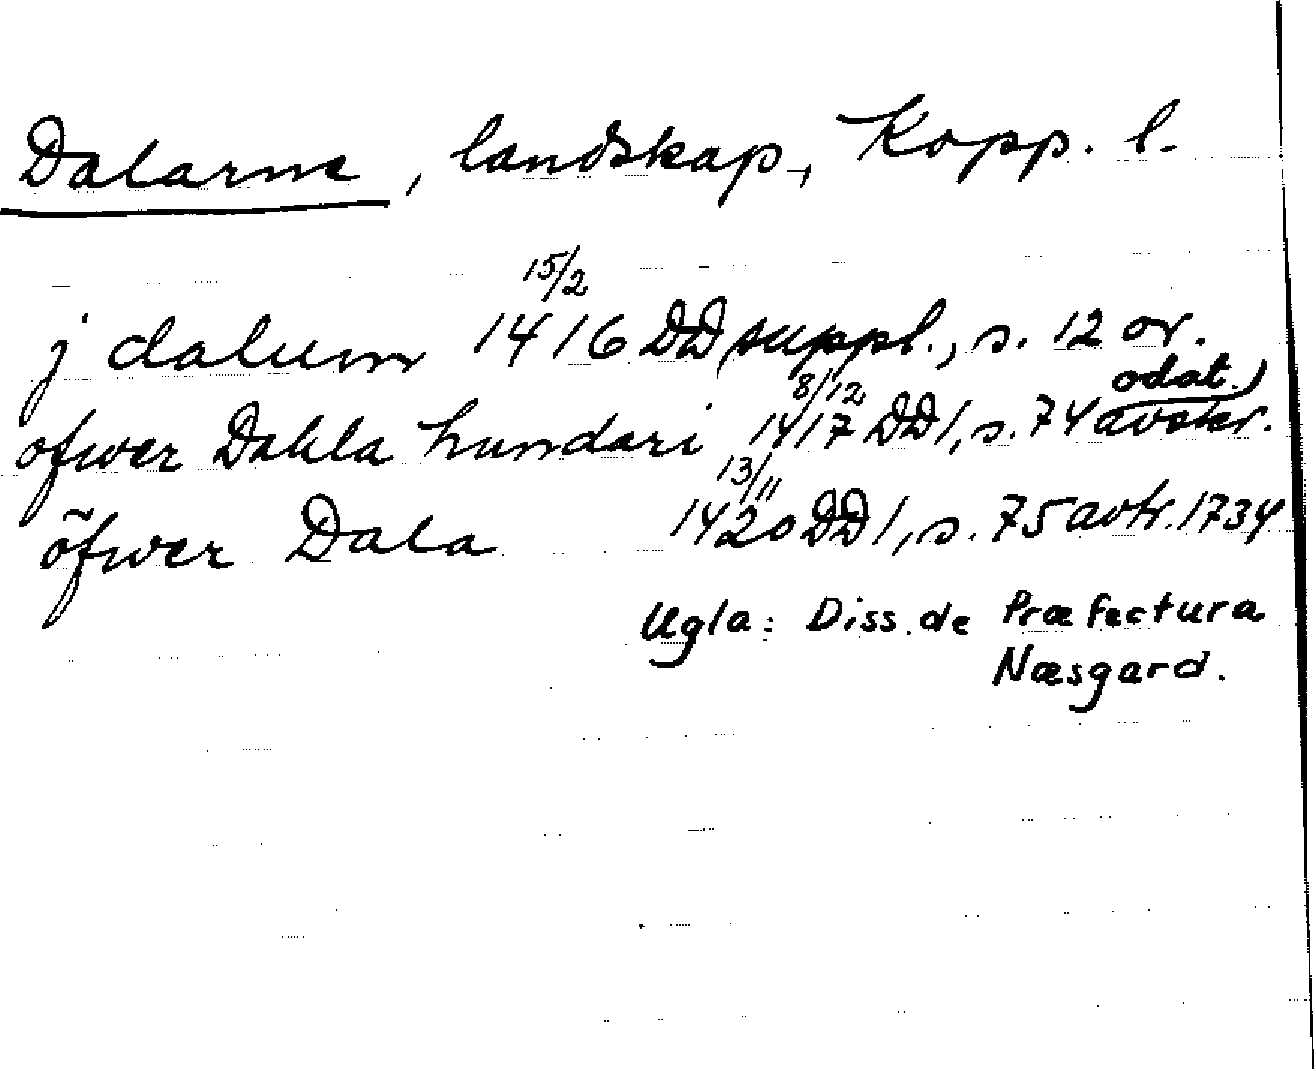 Dalarne, landskap, Kopp. l.
j dalum 15/2 1416 DD suppl., s. 12 or.
ofwer Dahla hundari 8/12 1417 DD 1, s. 74 odat. avskr.
öfwer Dala 13/11 1420 DD 1, s. 75 avtr. 1734
Ugla: Diss. de Præfectura
Næsgard.